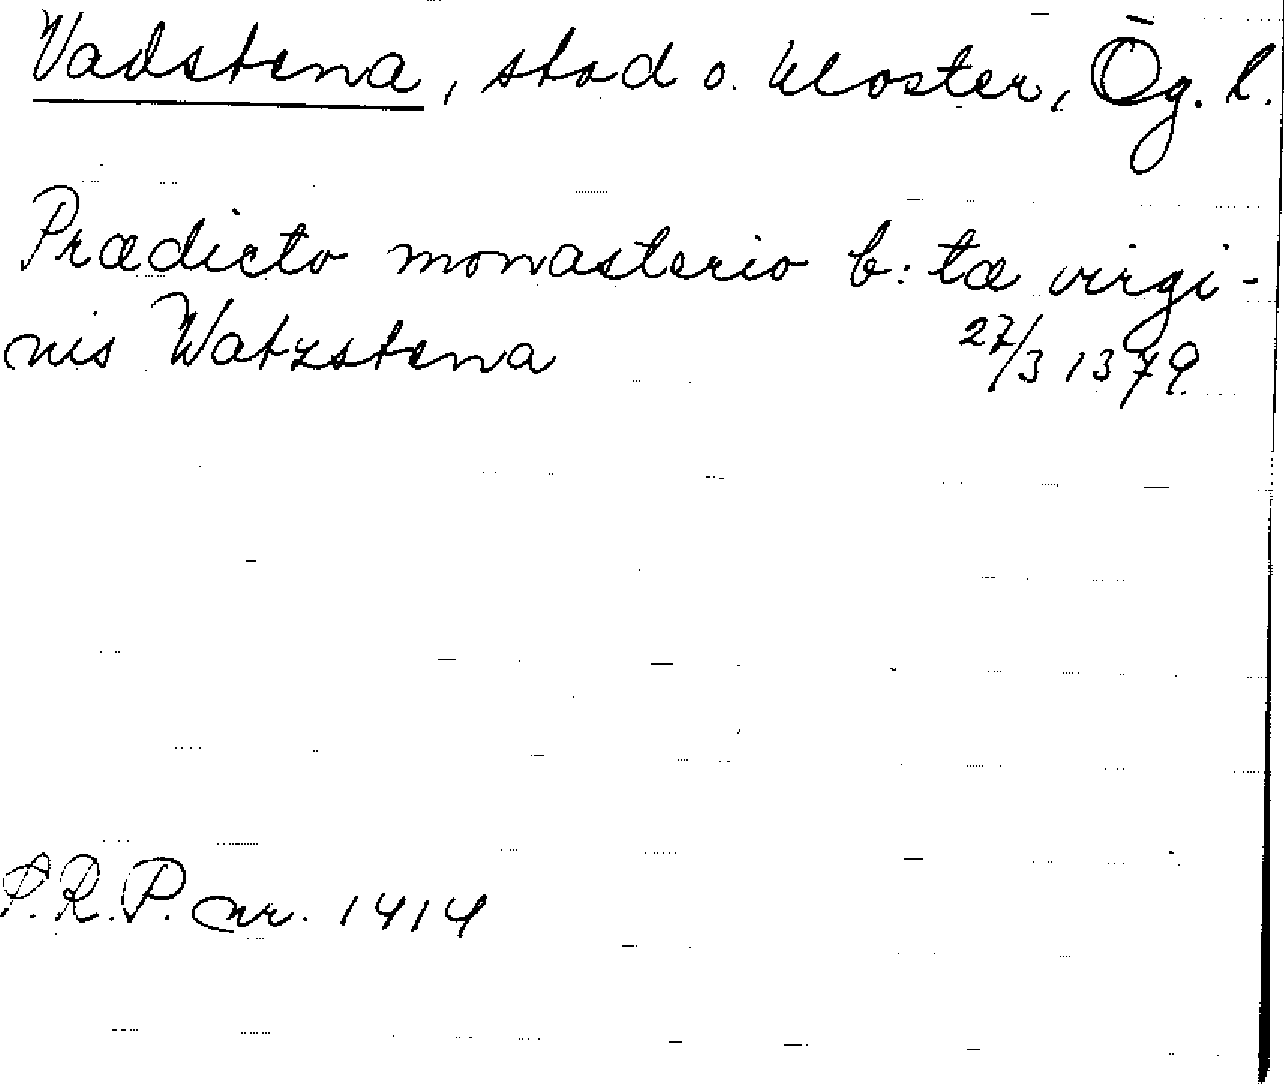 Vadstena, stad o. kloster, Ög. l.
Prædicto monasterio b:tæ virgi-
nis Watzstena 27/3 1379.
S.R.P. nr. 1414